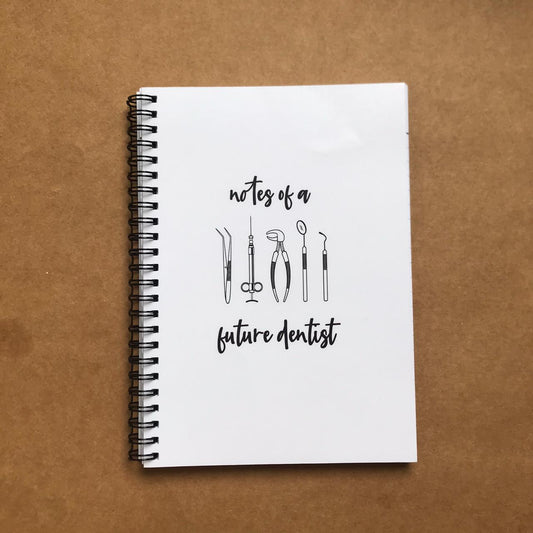 notes of a
future dentist